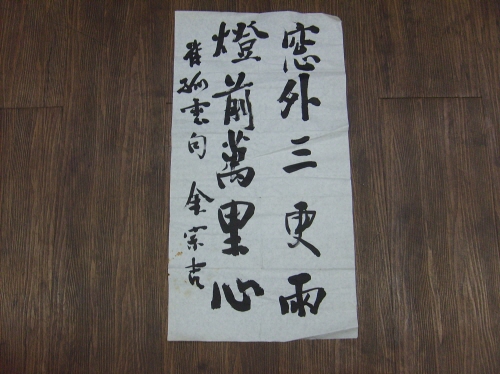 窓外三更雨
燈前萬里心
崔孤雲句 金宗吉